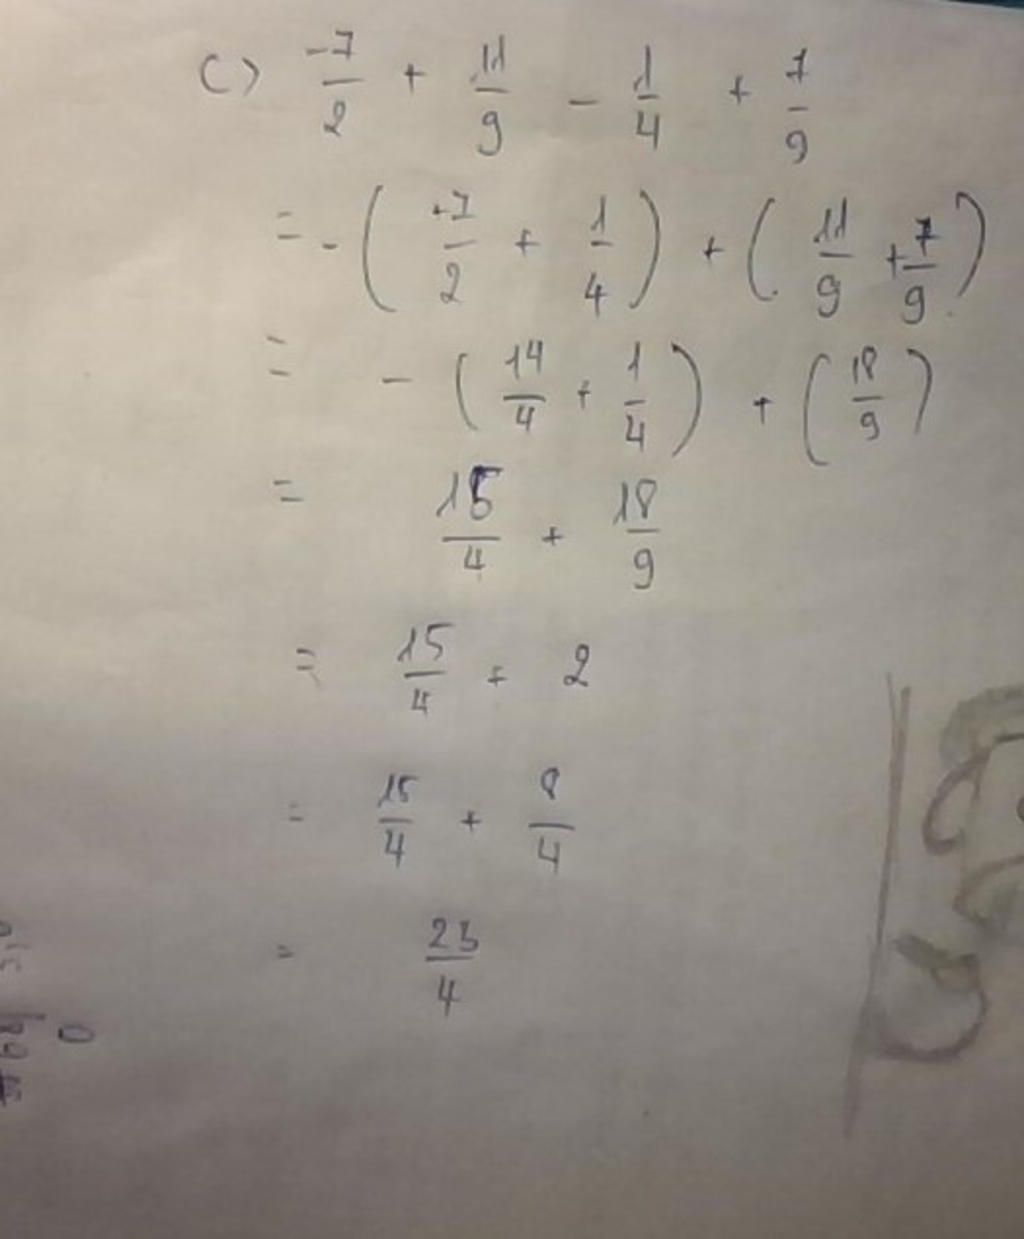 c) -7/2 + 11/9 - 1/4 + 7/9
= - ( +7/2 + 1/4 ) + ( 11/9 + 7/9 )
= - ( 14/4 + 1/4 ) + ( 18/9 )
= 15/4 + 18/9
= 15/4 + 2
= 15/4 + 8/4
= 23/4